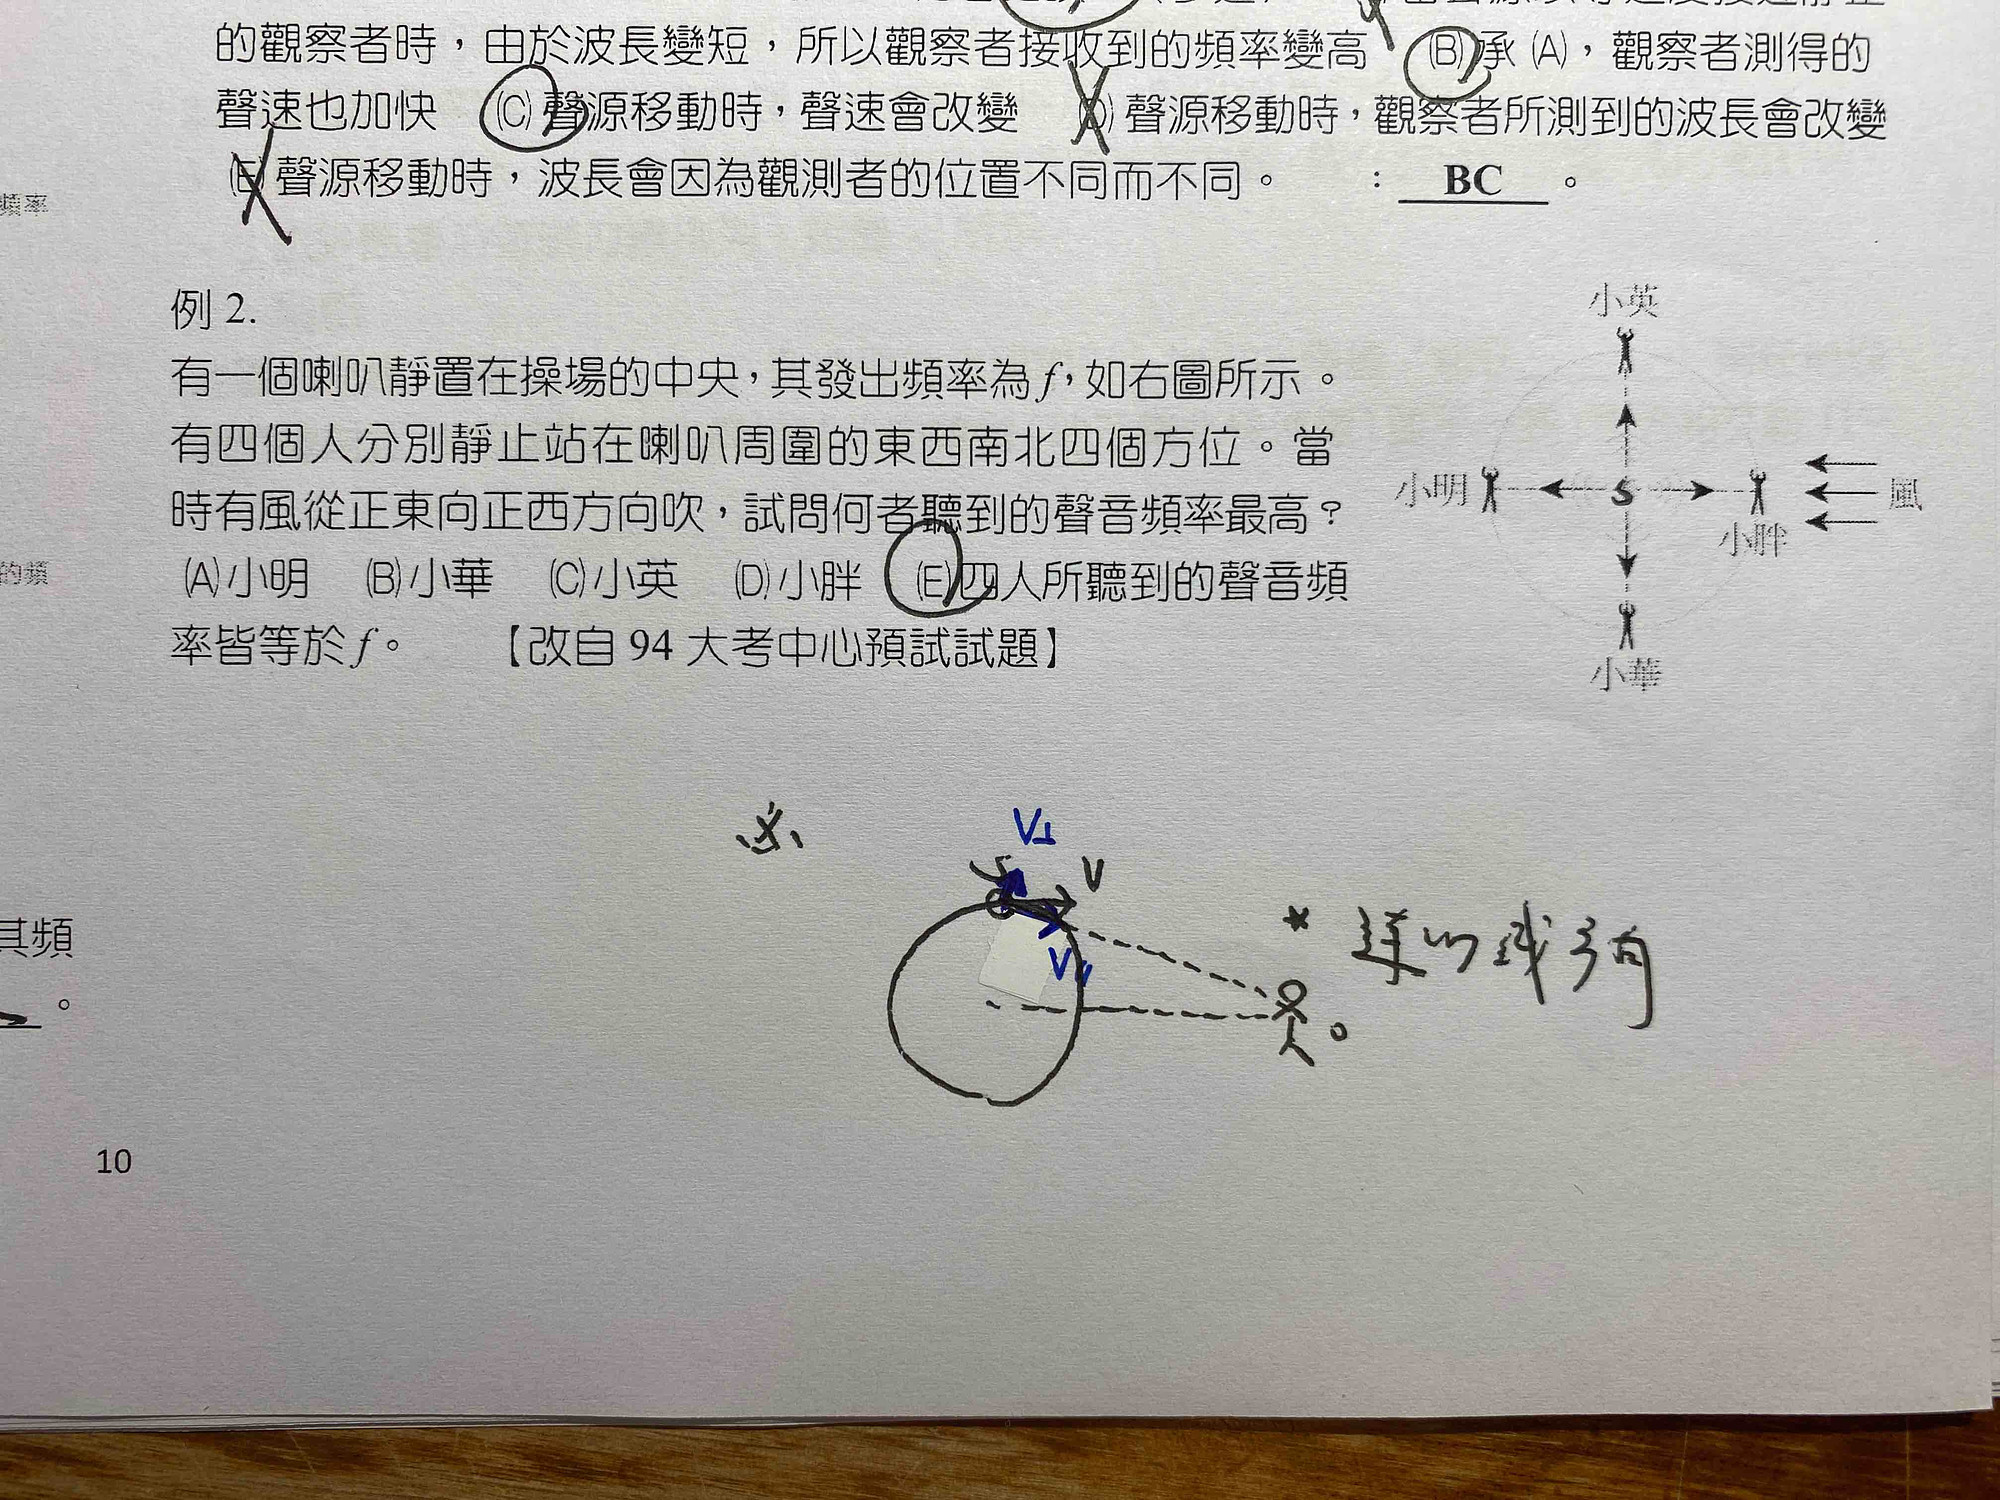 的觀察者時，由於波長變短，所以觀察者接收到的頻率變高 (B)承(A)，觀察者測得的
聲速也加快 (C)聲源移動時，聲速會改變 (D)聲源移動時，觀察者所測到的波長會改變
(E)聲源移動時，波長會因為觀測者的位置不同而不同。 ： BC 。
頻率
例 2.
有一個喇叭靜置在操場的中央，其發出頻率為 f，如右圖所示。
有四個人分別靜止站在喇叭周圍的東西南北四個方位。當
時有風從正東向正西方向吹，試問何者聽到的聲音頻率最高？
(A)小明 (B)小華 (C)小英 (D)小胖 (E)四人所聽到的聲音頻
率皆等於 f。 【改自 94 大考中心預試試題】
小英
小明 S 小胖 風
小華
的頻
V⊥
S V
V//
* 連心線方向
其頻
。
10